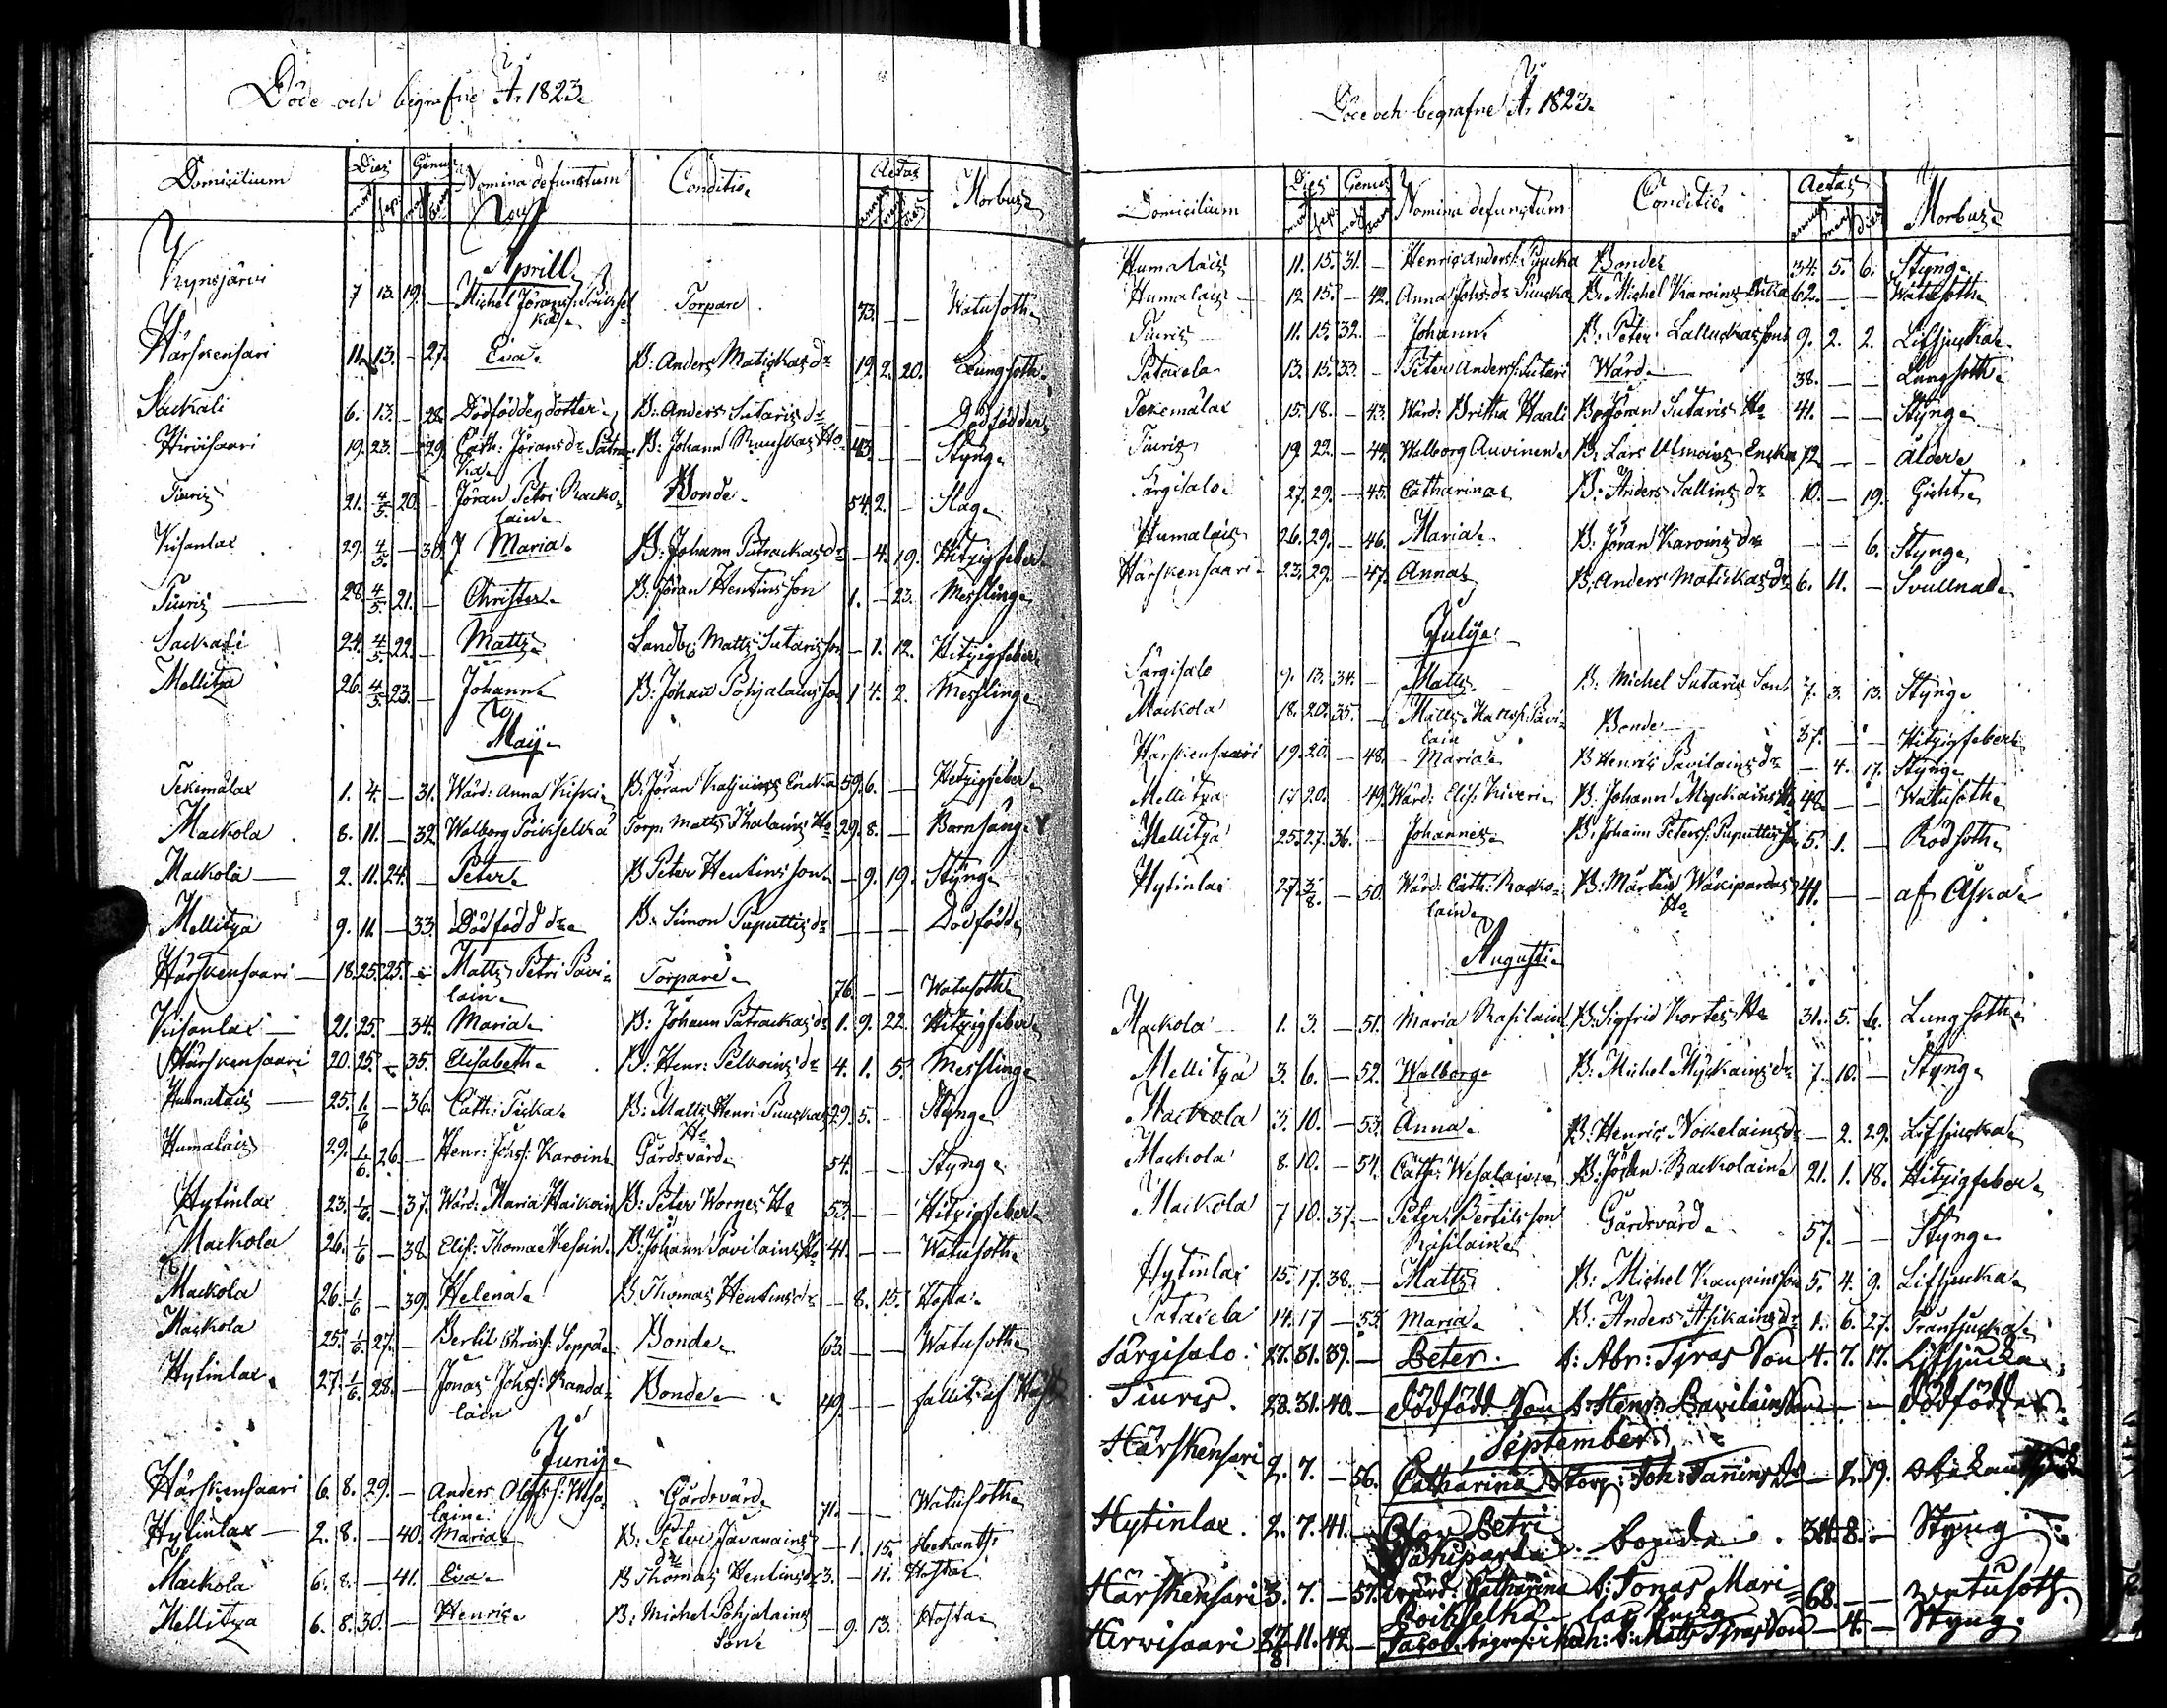 Döde och begrafne År 1823.
Domicilium Dies Genus Nomina defunctum Conditio Aetas Morbus
Aprill
Kynsjärvi 7 13. 19. — Michel Jöranss: Torpare 73. — — Watusoth
Härskensari 11. 13. — 27. Eva B: Anders Matiskas dr 19. 2. 20. Lungsoth
Sackali 6. 13. — 28. Dödfödder dotter B: Anders Sutaris dr — — — Dödfödder
Hirvisaari 19. 23. — 29. Cath: Jöransdr B: Johann Ruuskas Ho 43. — — Styng
Tiuris 21. 4/5. 20. — Jöran Petri Racko- Bonde 54. 2. — Slag
lain
Kisanlax 29. 4/5. — 30. Maria B: Johann Putrackas dr — 4. 19. Hitzigfeber
Tiuris 28. 4/5. 21. — Christer B: Jöran Hentins son 1. — 23. Messling
Sackali 24. 4/5. 22. — Matts Landb: Matts Sutaris son — 1. 12. Hitzigfeber
Mellitza 26. 4/5. 23. — Johann B: Johan Pohjalains son 1 4. 2. Messling
May
Tekemälax 1. 4. — 31. Wärd: Anna Kiski B: Jöran Enka 59. 6. — Hetzigfeber
Mackola 8. 11. — 32. Walborg Poikselkä Torp: Matts Ho 29. 8. — Barnsäng
Mackola 2. 11. 24. — Peter B Peter Hentins son — 9. 19. Styng
Mellitza 9. 11. — 33. Dödfödd dr B: Simon Puputtis dr — — — Dödfödd
Härskensaari 18. 25. 25. — Matts Petri Pavi- Torpare 76. — — Watusoth
lain
Kisanlax 21. 25. — 34. Maria B: Johann Putrackas dr 1. 9. 22. Hitzigfeber
Härskensaari 20. 25. — 35. Elisabeth B: Henr: Pelkoins dr 4. 1. 5. Messling
Humalais 25. 1/6 — 36. Cath: Tiska B: Matts Henri Puuskas 29. 5. — Styng
Ho
Humalais 29. 1/6. 26. — Henr: Johss: Karoin Gårdsvärd 54. — — Styng
Hytinlax 23. 1/6. — 37. Wärd: Maria Haikoin B: Peter Wornes Ho 53. — — Hitzigfeber
Mackola 26. 1/6 — 38. Elis: Thomae Kesoin B: Johann Pavilains Ho 41. — — Watusoth
Mackola 26. 1/6 — 39. Helena B. Thomas Hentins dr — 8. 15. Hosta
Mackola 25. 1/6. 27. — Bertil Christ: Seppä Bonde 63. — — Watusoth
Hytinlax 27. 1/6. 28. — Jonas Johss: Randa- Bonde 49. — — fallit af
lain
Juny
Härskensaari 6. 8. 29. — Anders Olofss: Wesa- Gårdsvärd 71. — — Watusoth
lain
Hytinlax 2. 8. — 40. Maria B: Peter Javanains — 1. 15. Obekant
dr
Mackola 6. 8. — 41. Eva B Thomas Hentins dr 3. — 11. Hosta
Mellitza 6. 8. 30. — Henric B: Michel Pohjalains — 9. 13. Hosta
Son
Döde och begrafne År 1823.
Domicilium Dies Genus Nomina defunctum Conditio Aetas Morbus
Humalais 11. 15. 31. — Henric Anderss: Puucka Bonde 34. 5. 6. Styng
Humalais 12 15. — 42. Anna Johs:dr Puuska B: Michel Karoins Enka 62. — — Watusoth
Tiuris 11. 15. 32. — Johann B: Peter Lalluckas son 9. 2. 2. Lifsjucka
Patacela 13. 15. 33. — Peter Anderss: Sutari Wärd 38. — — Lungsoth
Tekemälax 15. 18. — 43. Wärd: Britha Haali B: Jöran Sutaris Ho 41. — — Styng
Tiuris 19 22. — 44. Walborg Auvinen B: Lars Ulmoins Encka 72 — — Ålder
Särgisalo 27. 29. — 45. Catharina B: Anders Sallins dr 10. — 19. Gicht
Humalais 26. 29. — 46. Maria B: Jöran Karoins dr — — 6. Styng
Härskensaari 23. 29. — 47. Anna B: Anders Matiskas dr 6. 11. — Svullnad
July
Särgisalo 9. 13. 34. — Matts B: Michel Sutaris Son 7. 3. 13. Styng
Mackola 18. 20. 35. — Matts Matss: Pavi- Bonde 37. — — Hitzigfeber
lain
Härskensaari 19. 20. — 48. Maria B Henric Pavilains dr — 4. 17. Styng
Mellitza 17 20. 49. Wärd: Elis: Kiveri B: Johann Myckains Ho 48. — — Wattusoth
Mellitza 25. 27. 36. — Johannes B: Johann Peterss: Puputtis son 5. 1. — Rödsoth
Hytinlax 27. 3/8. — 50. Wärd: Cath: Racko- B: Mårten Wäkipardas 41. — — af Åska
lain Ho
Augusti
Mackola 1. 3. — 51. Maria Rasilain B: Sigfrid Kortes Ho 31. 5. 6. Lungsoth
Mellitza 3. 6. — 52. Walborg B: Michel Myckains dr 7. 10. — Styng
Mackola 3. 10. — 53. Anna B: Henric Nokelains dr — 2. 29. Lifsjucka
Mackola 8. 10. — 54. Cath: Wesalain B: Jöran Rackolain 21. 1. 18. Hitzigfeber
Mackola 7 10. 37. — Peter Bertilsson Gårdsvärd 57. — — Styng
Rasilain
Hytinlax 15. 17. 38. — Matts B: Michel Kaupins son 5. 4. 9. Lifsjucka
Patacela 14. 17 — 55. Maria B: Anders Asikains dr 1. 6. 27. Fransjucka
Särgisalo. 27. 31. 39. — Peter. b: Abr: Tyras Son 4. 7. 17. Lifsjucka
Tiuris. 28. 31. 40. — Dödfödd Son b: Henr: Pavilains Son — — — Dödfödder.
September
Härskensari 2. 7. — 56. Catharina Torp: Joh: Tannins Dr — 2. 19. obekant
Hytinlax. 2. 7. 41. — Olov Petri bonde 34. 8. — Styng
Wäkiparta
Härskensari 3. 7. — 57. Wärd: Catharina b: Jonas Mari- 68. — — watusoth.
Poikselkä las Encka
Hirvisaari 27/8 11. 42. — Jacob, begraf: i Kexh: b: Matts Tyras Son — 4. — Styng.